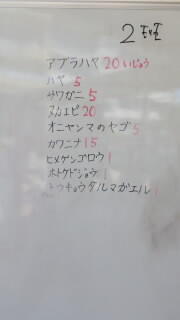 2 班
アブラハヤ 20いじょう
ハヤ 5
サワガニ 5
ヌカエビ 20
オニヤンマのヤゴ 5
カワニナ 15
ヒメゲンゴロウ 1
ホトケドジョウ 1
トウキョウダルマガエル 1